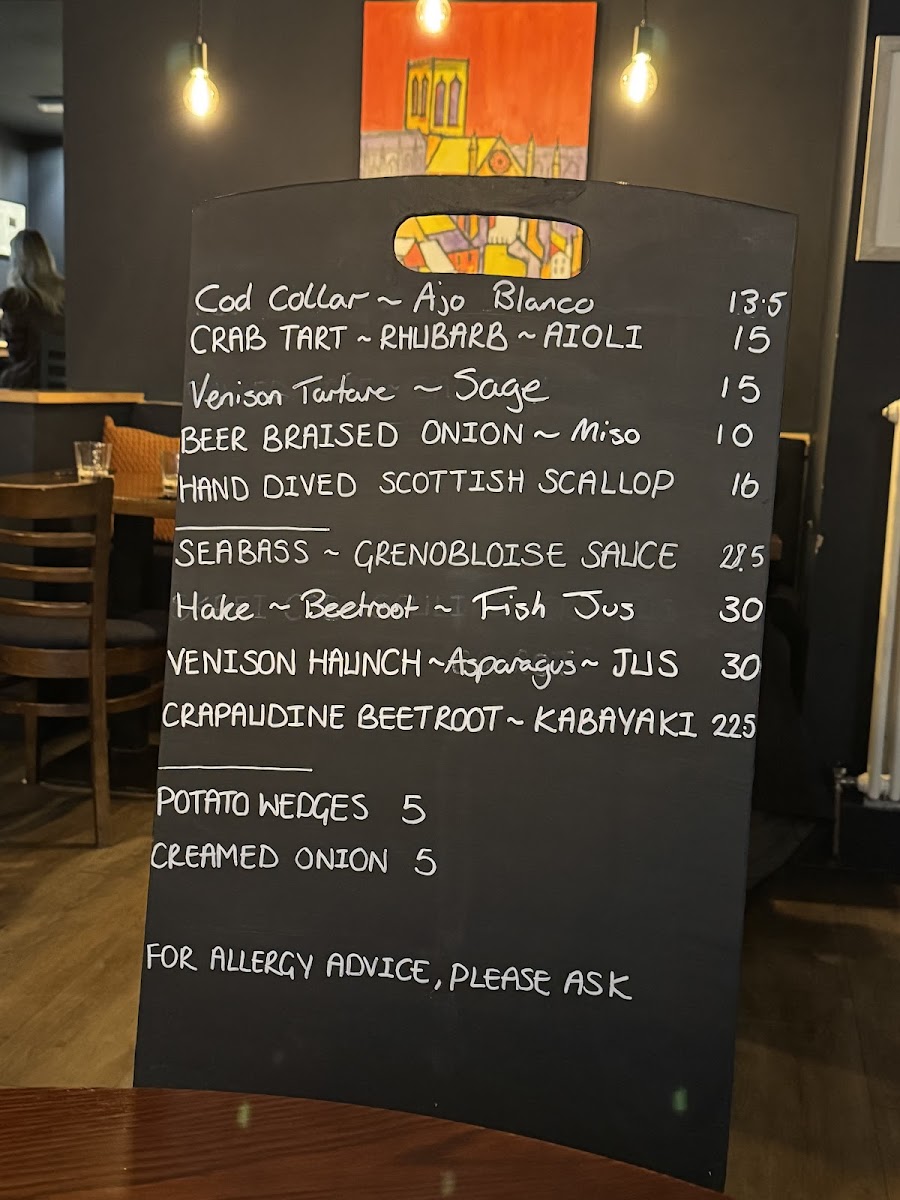 Cod Collar ~ Ajo Blanco 13.5
CRAB TART ~ RHUBARB ~ AIOLI 15
Venison Tartare ~ Sage 15
BEER BRAISED ONION ~ Miso 10
HAND DIVED SCOTTISH SCALLOP 16
SEABASS ~ GRENOBLOISE SAUCE 28.5
Hake ~ Beetroot ~ Fish Jus 30
VENISON HAUNCH ~ Asparagus ~ JUS 30
CRAPAUDINE BEETROOT ~ KABAYAKI 225
POTATO WEDGES 5
CREAMED ONION 5
FOR ALLERGY ADVICE, PLEASE ASK